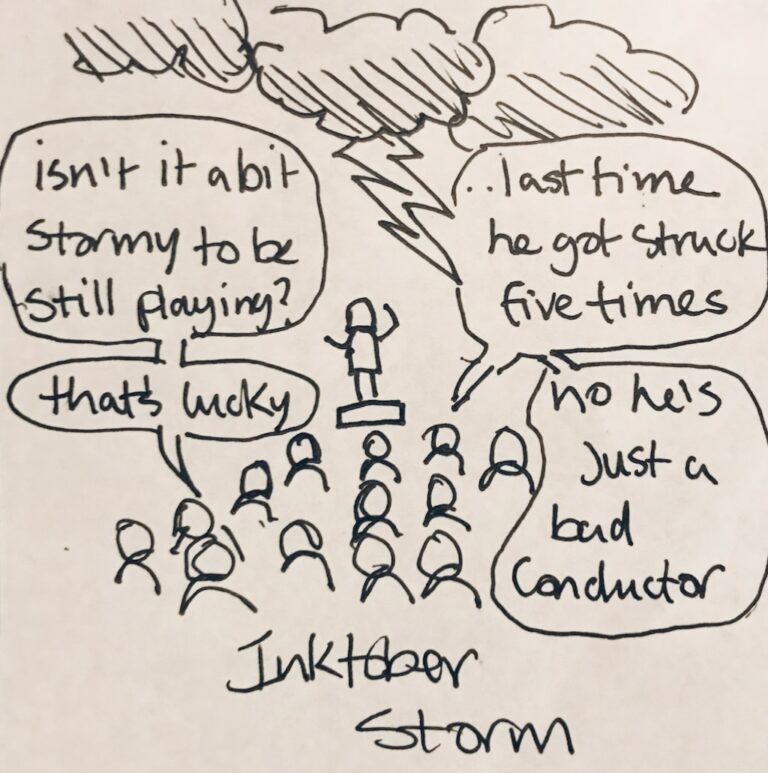 isn't it a bit
stormy to be
still playing?
..last time
he got struck
five times
that's lucky
no he's
just a
bad
conductor
Inktober
Storm